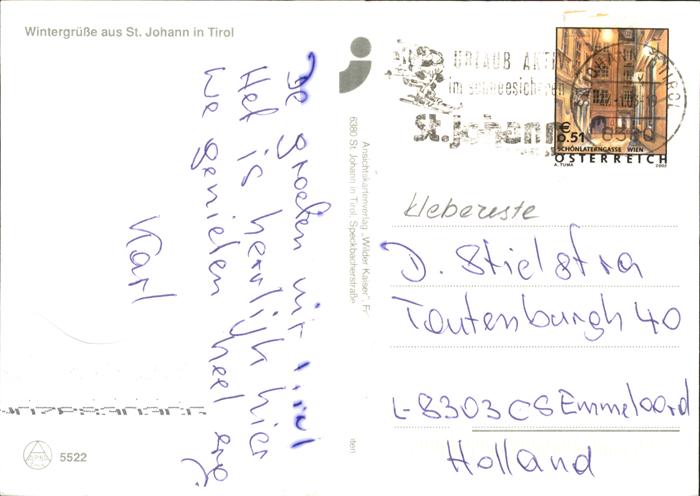 Wintergrüße aus St. Johann in Tirol
De groeten uit Tirol
Het is heerlijk hier
We genieten heel erg
Karl
5522
Ansichtskartenverlag „Wilder Kaiser“,
6380 St. Johann in Tirol, Speckbacherstraße
URLAUB AKTIV
im schneesicheren
st. johann
6380
€
0.51
SCHÖNLATERNGASSE WIEN
ÖSTERREICH
A. TUMA 2002
Klebereste
D. Stielstra
Tautenburgh 40
L-8303 CS Emmeloord
Holland